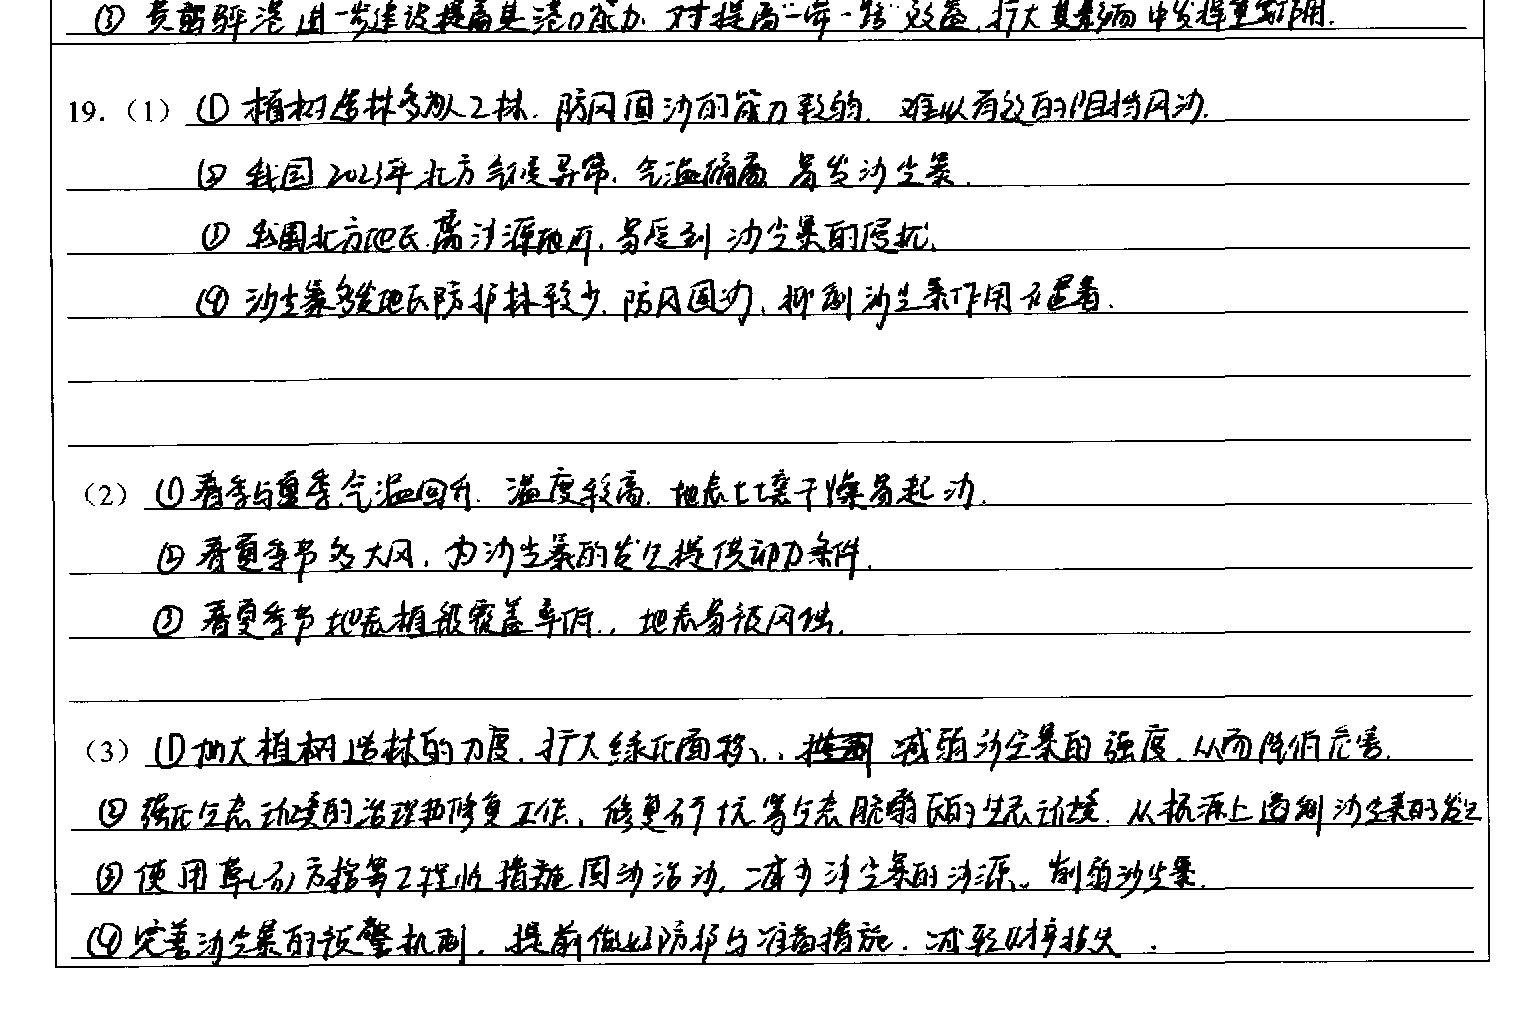 ③ 黄骅港进一步建设提高其港口能力，对提高“一带一路”效益，扩大其影响中发挥重要作用.
19.（1）① 植树造林多为人工林，防风固沙的能力较弱，难以有效的阻挡风沙.
② 我国2023年北方气候异常，气温偏高 易发沙尘暴.
③ 我国北方地区离沙源地近，易受到沙尘暴的侵扰.
④ 沙尘暴多发地区防护林较少，防风固沙，抑制沙尘暴作用不显著.
（2）① 春季与夏季气温回升，温度较高，地表土壤干燥易起沙.
② 春夏季节多大风，为沙尘暴的发生提供动力条件.
③ 春夏季节地表植被覆盖率低，地表易被风蚀.
（3）① 加大植树造林的力度，扩大绿化面积，减弱沙尘暴的强度，从而降低危害.
② 强化生态环境的治理和修复工作，修复等生态脆弱区的生态环境，从根源上遏制沙尘暴的发生
③ 使用草方格等工程性措施固沙治沙，减少沙尘暴的沙源。削弱沙尘暴.
④ 完善沙尘暴的预警机制，提前做好防护与准备措施，减轻财产损失.